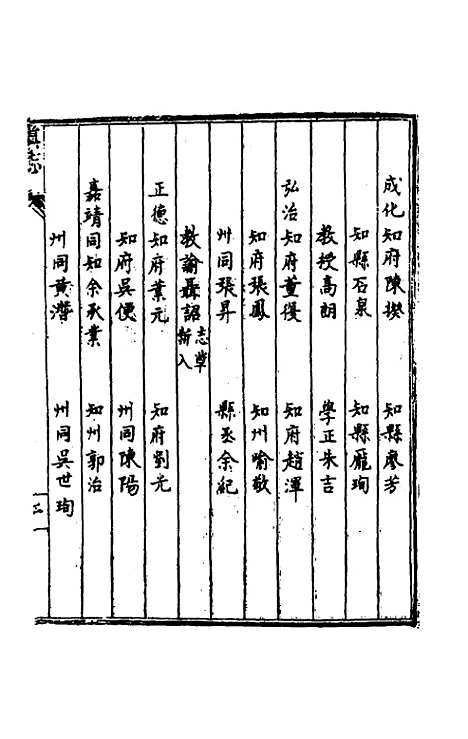 成化知府陳揆 知縣廖芳
知縣石泉 知縣龐珣
教授高朗 學正朱吉
弘治知府董復 知府趙渾
知府張鳳 知州喻敬
州同張昇 縣丞余紀
教諭聶詔 志草新入
正德知府葉元 知府劉光
知府吳便 州同陳陽
嘉靖同知余承業 知州郭治
州同黃澪 州同吳世珣
滇志